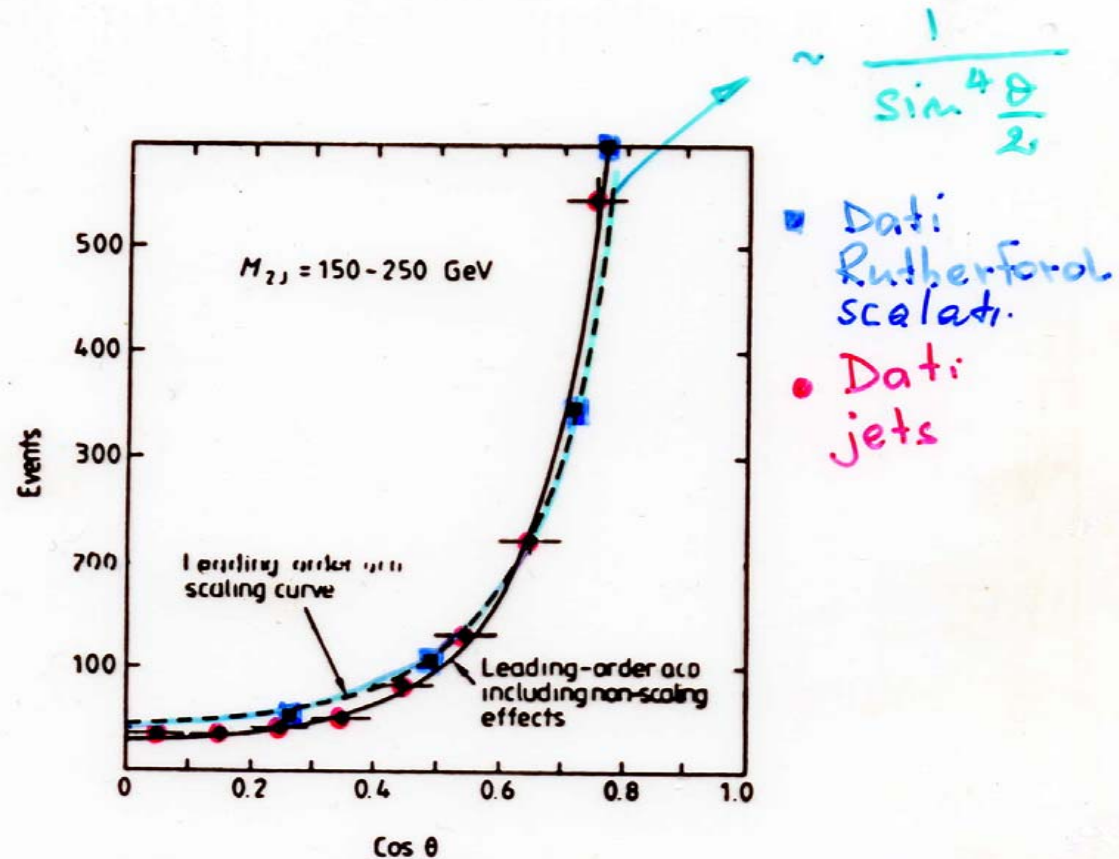 ~ 1
sin⁴ θ
2
Dati
Rutherford
scalati.
Dati
jets
M2J = 150-250 GeV
500
400
300
200
100
Events
Leading order
scaling curve
Leading-order QCD
including non-scaling
effects
0 0.2 0.4 0.6 0.8 1.0
Cos θ